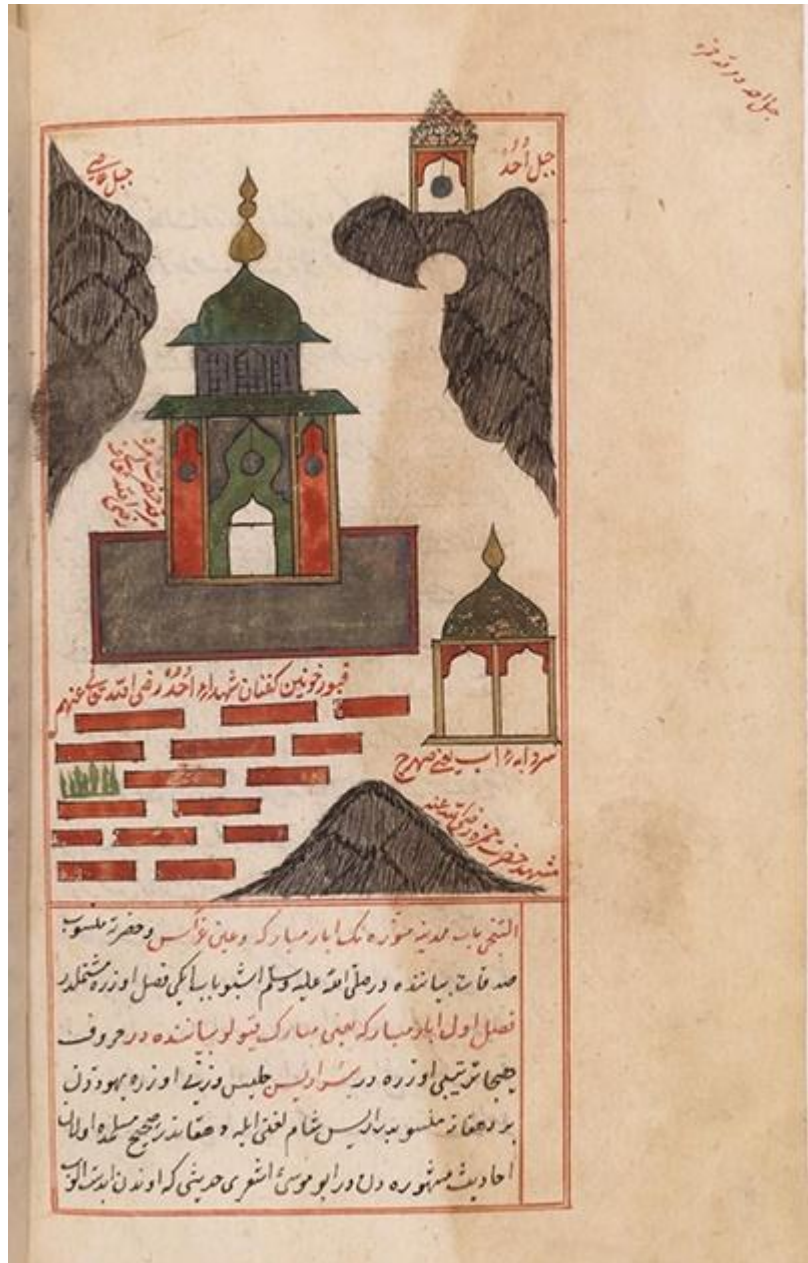 جبل احد
جبل اُحُدْ
جبل
قبور خونین کفنان شهداء اُحُدْ رضی الله تعالی عنهم
سردابهٔ آب یعنی صهرج
مشهد حضرت حمزه رضی الله عنه
التنجی باب مدینه منوّره نک ابار مبارکه و عین غراس و حضرته منسوب
صدقات بیاننده در صلی الله علیه وسلم اشبو باب ایکی فصل اوزره مشتملدر
فصل اول ابار مبارکه یعنی مبارک قیولر بیاننده در حروف
هجا ترتیبی اوزره در بئر اریس جلیس وزنی اوزره یهوددن
بر دهقانه منسوبدر اریس شام لغتی ایله دهقاندر صحیح مسلمده اولان
احادیث مشهوره دن در ابو موسی اشعری حدیثی که اوندن ابدست الوب